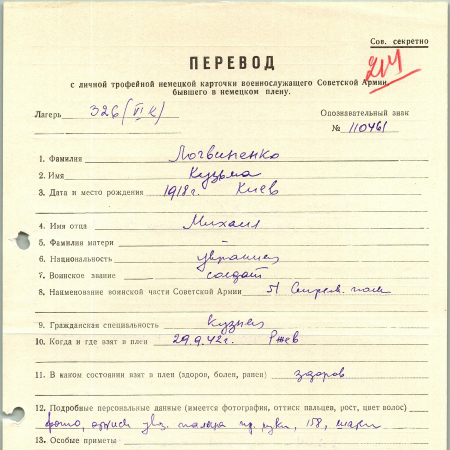 Сов. секретно
ПЕРЕВОД
с личной трофейной немецкой карточки военнослужащего Советской Армии,
бывшего в немецком плену.
Лагерь 326 (VI к)
Опознавательный знак
№ 110461
1. Фамилия Логвиненко
2. Имя Кузьма
3. Дата и место рождения 1918 г. Киев
4. Имя отца Михаил
5. Фамилия матери –
6. Национальность украинец
7. Воинское звание солдат
8. Наименование воинской части Советской Армии 51 полк
9. Гражданская специальность кузнец
10. Когда и где взят в плен 29.9.42 г. Ржев
11. В каком состоянии взят в плен (здоров, болен, ранен) здоров
12. Подробные персональные данные (имеется фотография, оттиск пальцев, рост, цвет волос)
фото, оттиск ук. пальца пр. руки, 158,
13. Особые приметы